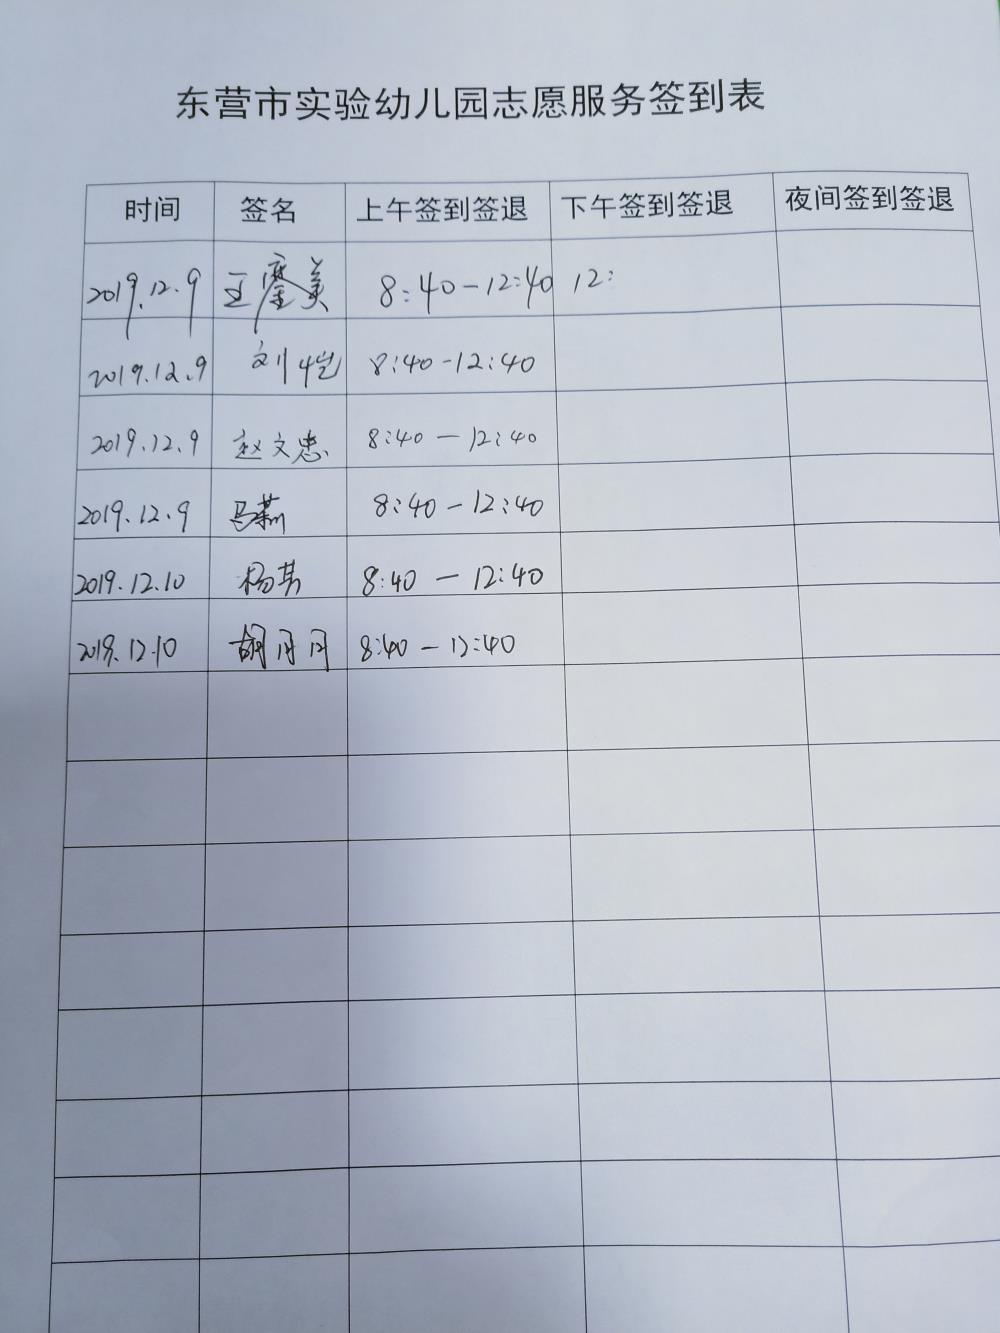 东营市实验幼儿园志愿服务签到表
时间 签名 上午签到签退 下午签到签退 夜间签到签退
2019.12.9 王 美 8:40-12:40 12:
2019.12.9 刘恺 8:40-12:40
2019.12.9 赵文忠 8:40-12:40
2019.12.9 马燕 8:40-12:40
2019.12.10 杨芳 8:40-12:40
2019.12.10 胡月月 8:40-12:40